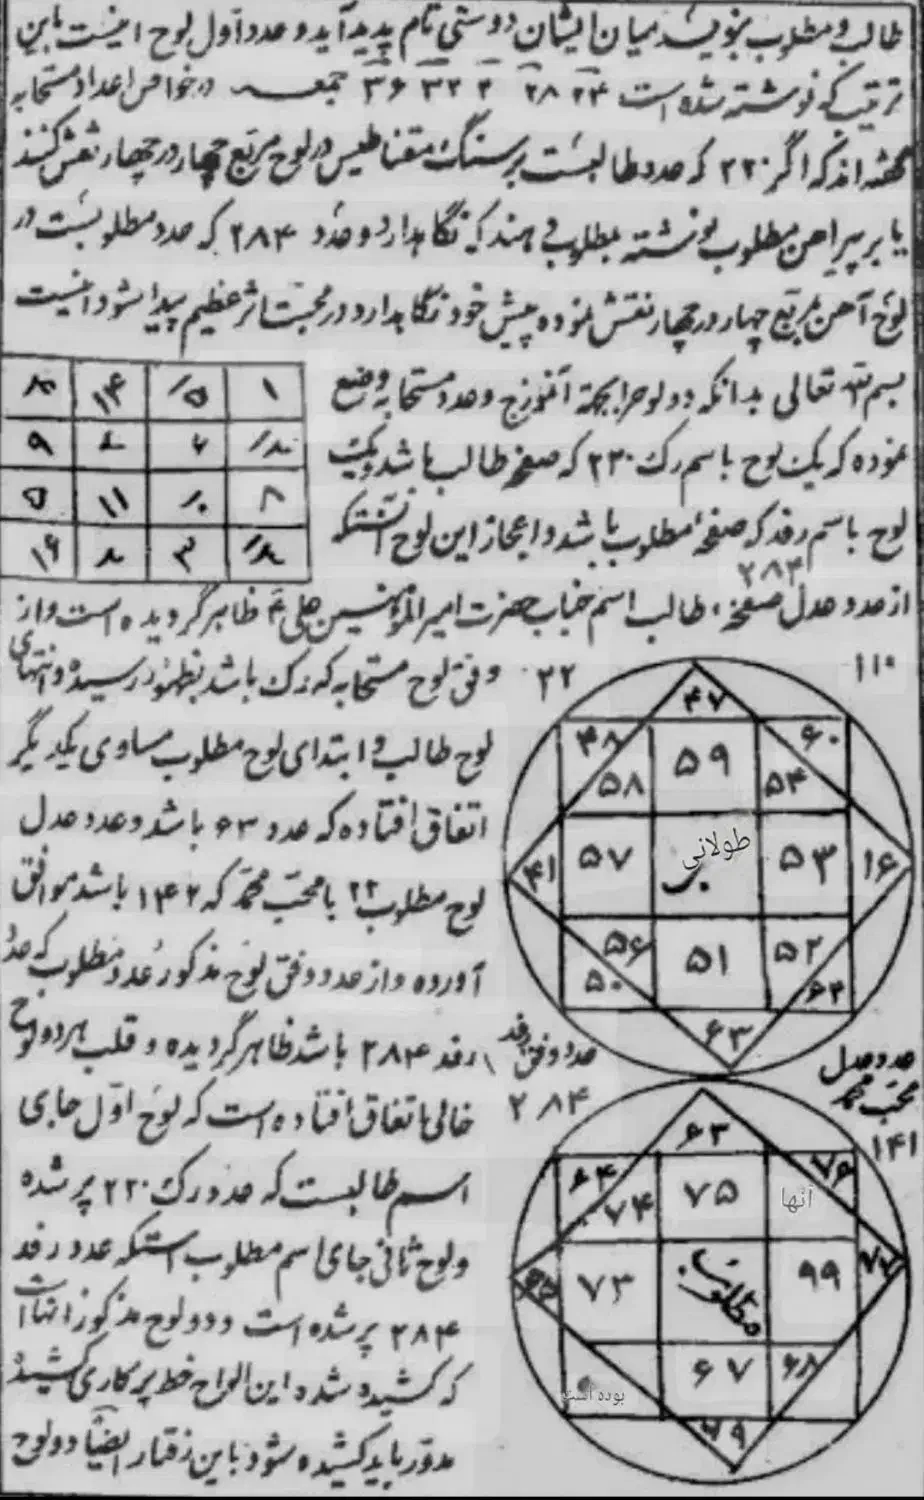 طالب و مطلوب بنویسد میان ایشان دوستی تام پدید آید و عدد اول لوح اینست باین
ترتیب که نوشته شده است ۲۴ ۲۸ ۲ ۳۲ ۳۶ جمعه در خواص اعداد متحابه
گفته اند که اگر ۲۲۰ که عدد طالبست بر سنگ مقناطیس در لوح مربع چهار در چهار نقش کنند
یا بر پیراهن مطلوب نوشته بمطلوب دهند که نگاهدارد و عدد ۲۸۴ که عدد مطلوبست در
لوح آهن مربع چهار در چهار نقش نموده پیش خود نگاهدارد در محبت اثر عظیم پیدا شود اینست
بسم الله تعالی بدانکه دو لوح را بجهة و عدد متحابه وضع
نموده که یک لوح باسم رک ۲۲۰ که صفحه طالب باشد و یک
لوح باسم رفد که صفحه مطلوب باشد و اعجاز این لوح آنستکه
۲۸۴
۱ ۱۴
۷ ۹
۸ ۱۰ ۱۱ ۵
۳ ۱۶
از عدد عدل صفحه طالب اسم جناب حضرت امیر المؤمنین علی ظاهر گردیده است و از
وفق لوح متحابه که رک باشد بظهور رسیده و انتهای
لوح طالب و ابتدای لوح مطلوب مساوی یکدیگر
اتفاق افتاده که عدد ۶۳ باشد و عدد عدل
لوح مطلوب ۲۲ با محب محمد که ۱۴۲ باشد موافق
آورده و از عدد وفق لوح مذکور عدد مطلوب که عدد
رفد ۲۸۴ باشد ظاهر گردیده و قلب هر دو لوح
خالی اتفاق افتاده است که لوح اول جای
اسم طالبست که عدد رک ۲۲۰ پر شده
و لوح ثانی جای اسم مطلوب استکه عدد رفد
۲۸۴ پر شده است و دو لوح مذکور
که کشیده شده این الواح خط پرکاری کشیده
مدور باید کشیده شود باین رفتار ایضا دو لوح
۱۱۰
۲۲
۴۷
۴۸ ۶۰
۵۸ ۵۹ ۵۴
۴۱ ۵۷ طولانی ۵۳ ۱۶
۵۶ ۵۱ ۵۲
۵۰ ۶۲
۶۳
عدد وفق رفد
۲۸۴
عدد عدل
محب محمد
۱۴۱
۶۳
۶۴ ۷۶
۷۴ ۷۵ آنها
۷۳ مطلوب ۹۹ ۷۲
۶۷ ۶۸
بوده است
۷۹